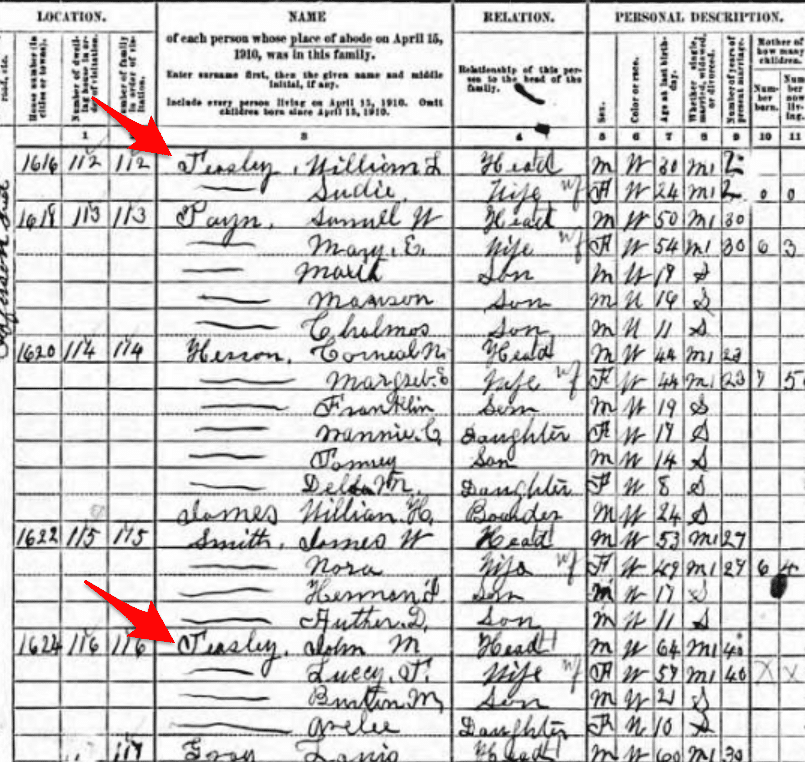 LOCATION. NAME RELATION. PERSONAL DESCRIPTION.
of each person whose place of abode on April 15,
1910, was in this family.
Enter surname first, then the given name and middle
initial, if any.
Include every person living on April 15, 1910. Omit
children born since April 15, 1910.
Relationship of this per-
son to the head of the
family.
House number (in cities or towns).
Number of dwelling house in order of visitation.
Number of family in order of visitation.
Sex.
Color or race.
Age at last birthday.
Whether single, married, widowed, or divorced.
Number of years of present marriage.
Mother of how many children.
Number born.
Number now living.
1 3 4 5 6 7 8 9 10 11
1616 112 112 Teasley, William L Head M W 30 M1 2
Sudie Wife F W 24 M1 2 0 0
113 113 Payn, Samuel W Head M W 50 M1 30
Mary. E. Wife F W 54 M1 30 6 3
Son M W 19 S
Manson Son M W 16 S
Cholmos Son M W 11 S
1620 114 114 Head M W M1 23
Wife F W M1 23 7 5
Franklin Son M W 19 S
Daughter F W 17 S
Son M W 14 S
Daughter F W 8 S
James William. H. Boarder M W 24 S
1622 115 115 Smith, James W Head M W 53 M1 27
Nora Wife F W 49 M1 27 6 4
Son M W 17 S
Auther. D. Son M W 11 S
1624 116 116 Teasley, John M Head M W 64 M1 40
Lucey. T. Wife F W 57 M1 40 X X
Burton. M. Son M W 21 S
Daughter F W 10 S
117 Gray Head M W 60 M1 39